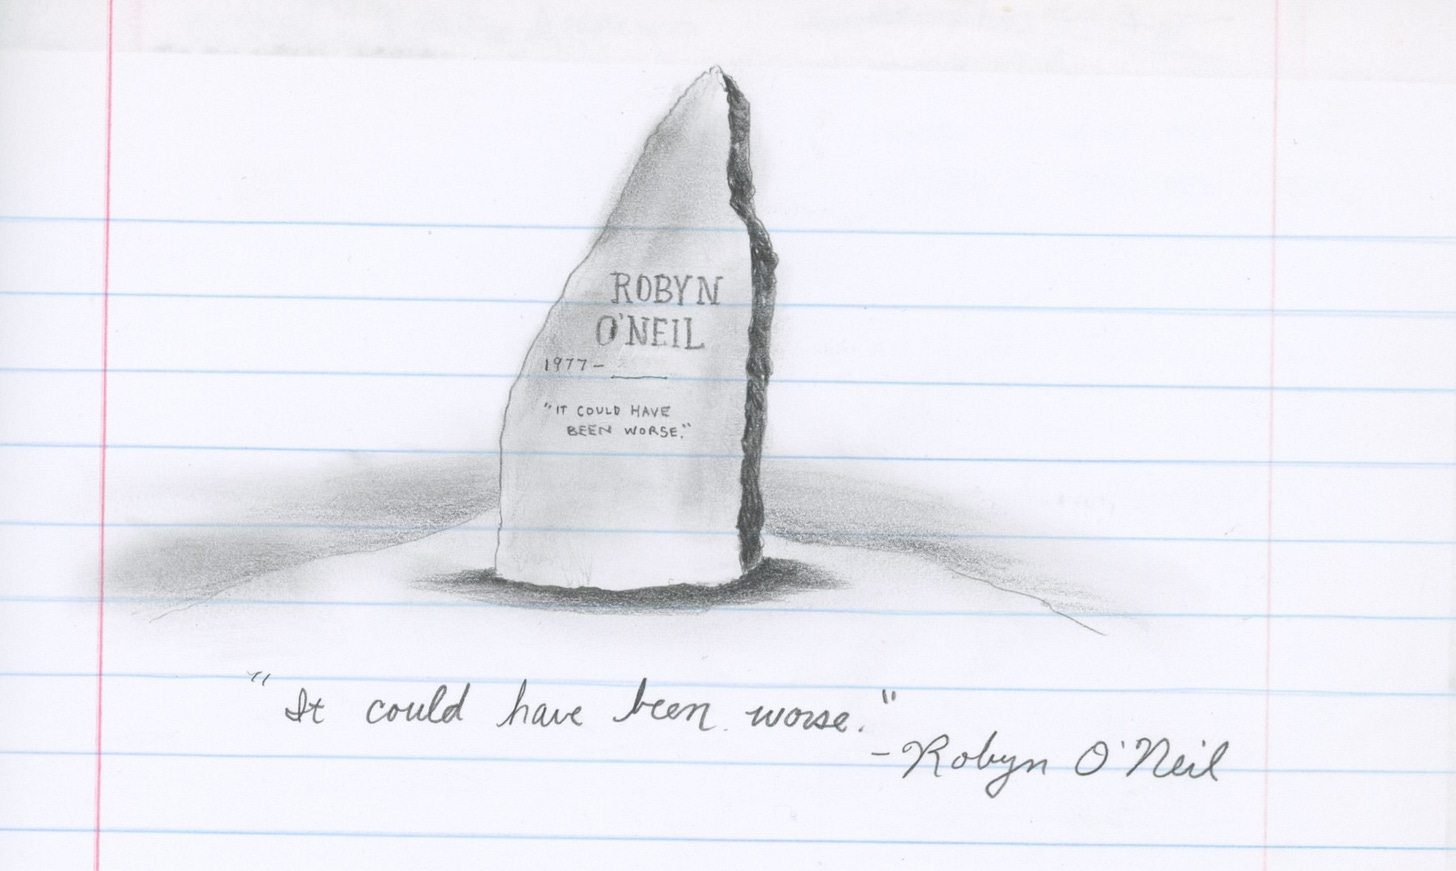 ROBYN
O'NEIL
1977-____
"IT COULD HAVE
BEEN WORSE."
"It could have been worse."
-Robyn O'Neil